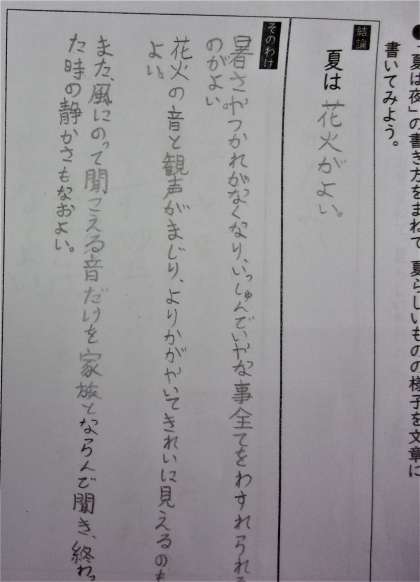 「夏は夜」の書き方をまねて、夏らしいものの様子を文章に
書いてみよう。
結論
夏は 花火がよい。
そのわけ
暑さやつかれがなくなり、いっしゅんでいやな事全てをわすれられる
のがよい
花火の音と観声がまじり、よりかがやいてきれいに見えるのも
よい。
また、風にのって聞こえる音だけを家族とならんで聞き、終わっ
た時の静かさもなおよい。